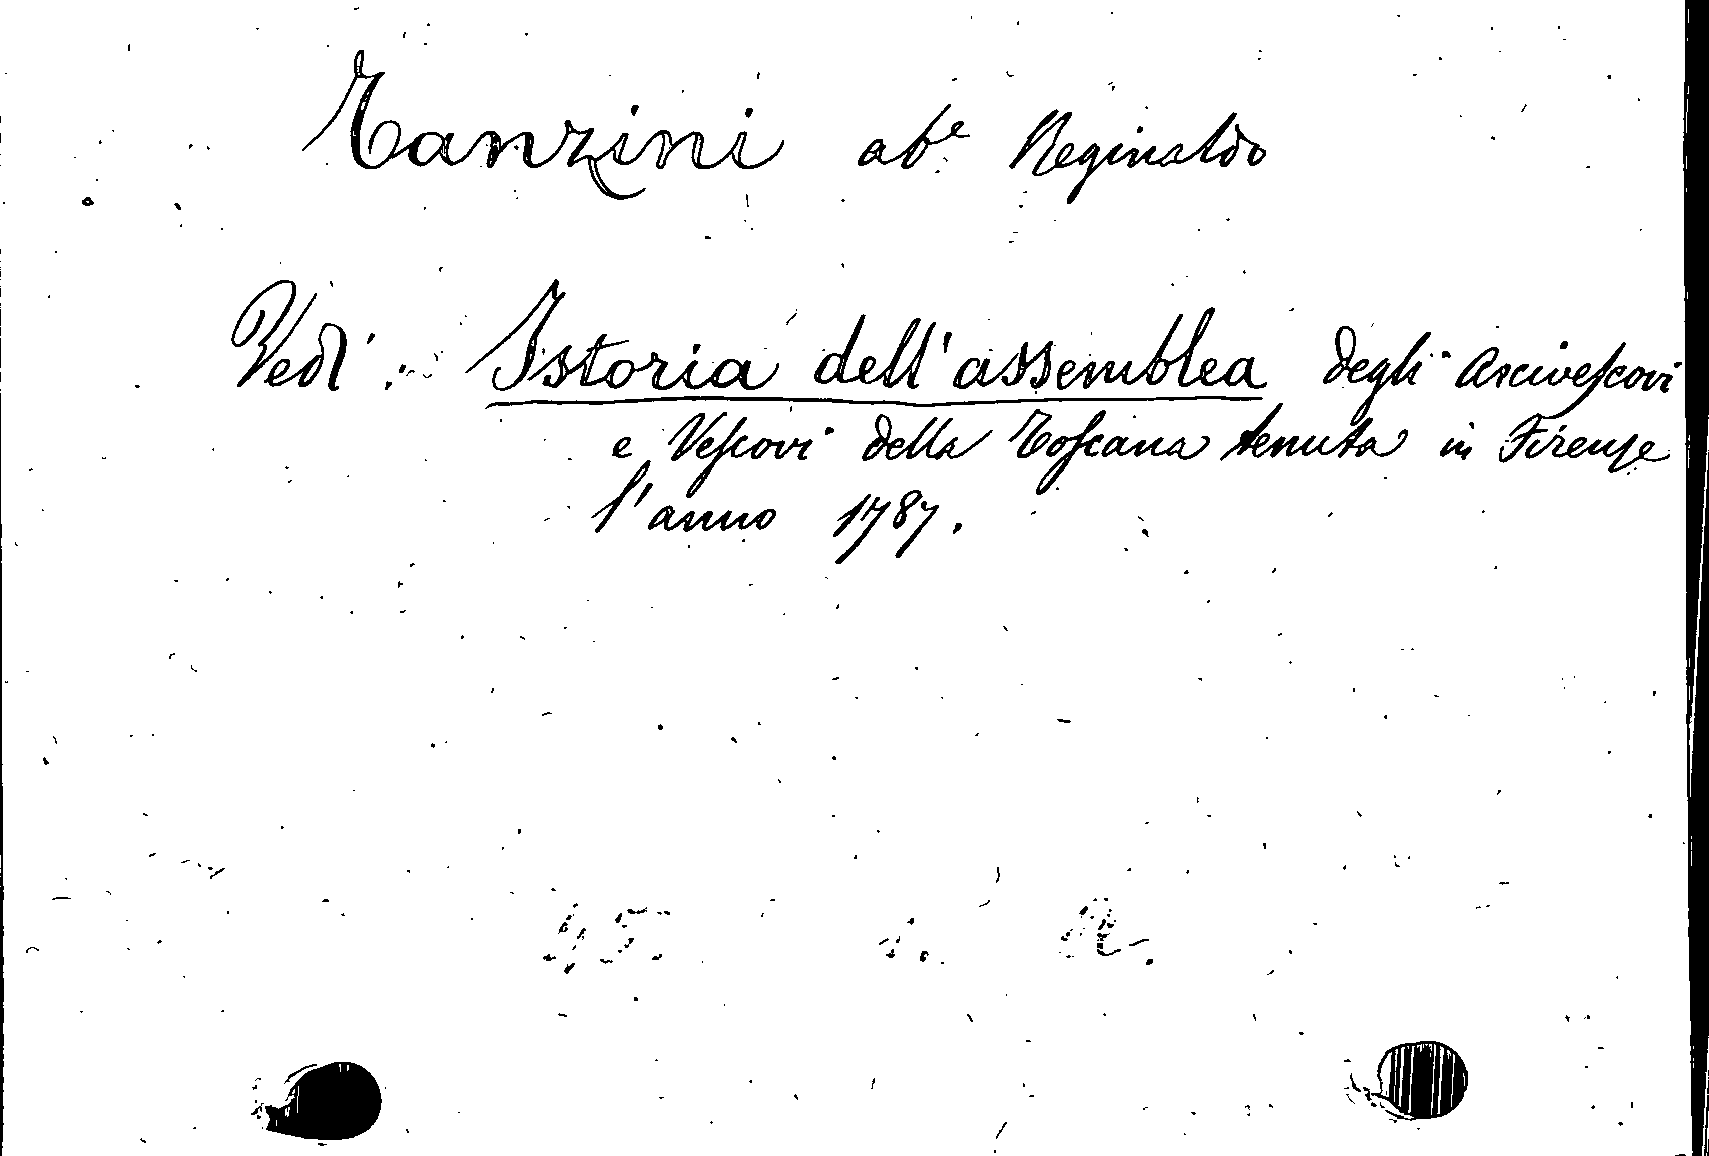 Tanzini ab.e Reginaldo
Vedi: Istoria dell'assemblea degli Arcivescovi
e Vescovi della Toscana tenuta in Firenze
l'anno 1787.
45. 1. A.